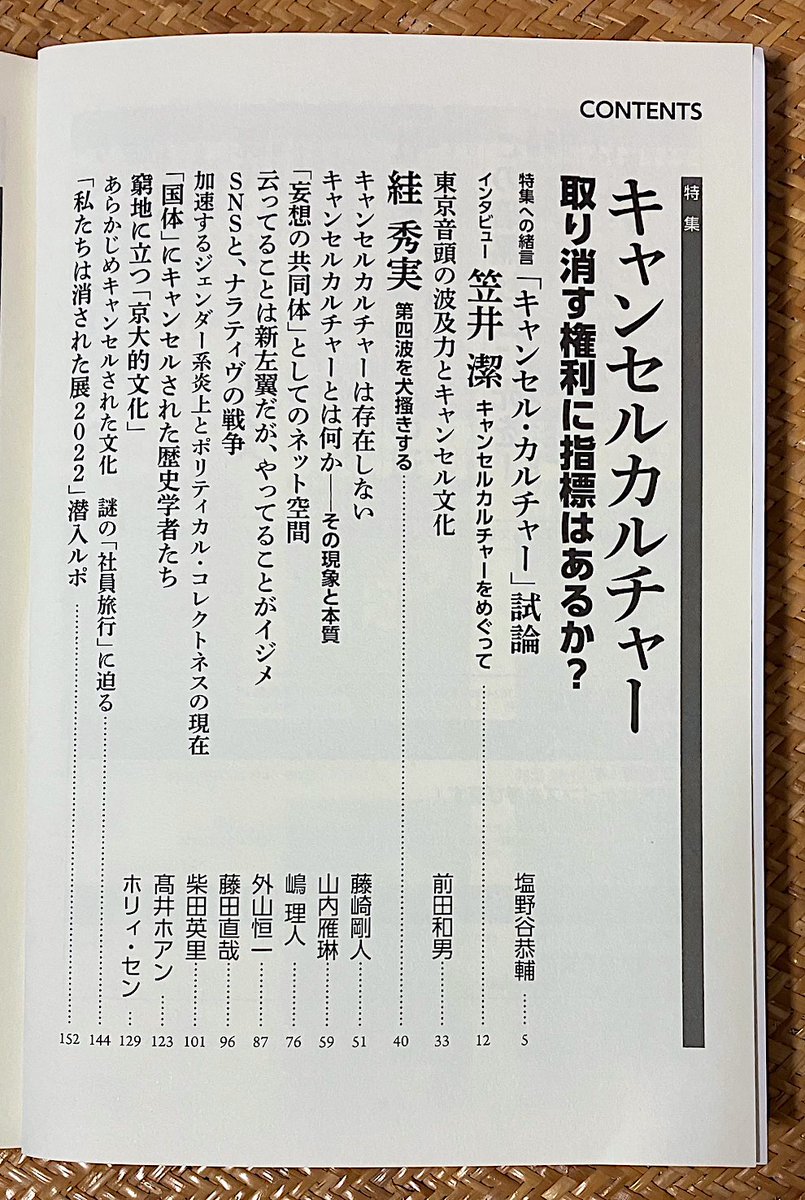 CONTENTS
特集
キャンセルカルチャー
取り消す権利に指標はあるか？
特集への緒言 「キャンセル・カルチャー」試論 塩野谷恭輔 …… 5
インタビュー 笠井 潔 キャンセルカルチャーをめぐって …… 12
東京音頭の波及力とキャンセル文化 前田和男 …… 33
絓 秀実 第四波を犬掻きする …… 40
キャンセルカルチャーは存在しない 藤崎剛人 …… 51
キャンセルカルチャーとは何か――その現象と本質 山内雁琳 …… 59
「妄想の共同体」としてのネット空間 嶋 理人 …… 76
云ってることは新左翼だが、やってることがイジメ 外山恒一 …… 87
SNSと、ナラティヴの戦争 藤田直哉 …… 96
加速するジェンダー系炎上とポリティカル・コレクトネスの現在 柴田英里 …… 101
「国体」にキャンセルされた歴史学者たち 髙井ホアン …… 123
窮地に立つ「京大的文化」 ホリィ・セン … 129
あらかじめキャンセルされた文化 謎の「社員旅行」に迫る …… 144
「私たちは消された展2022」潜入ルポ …… 152